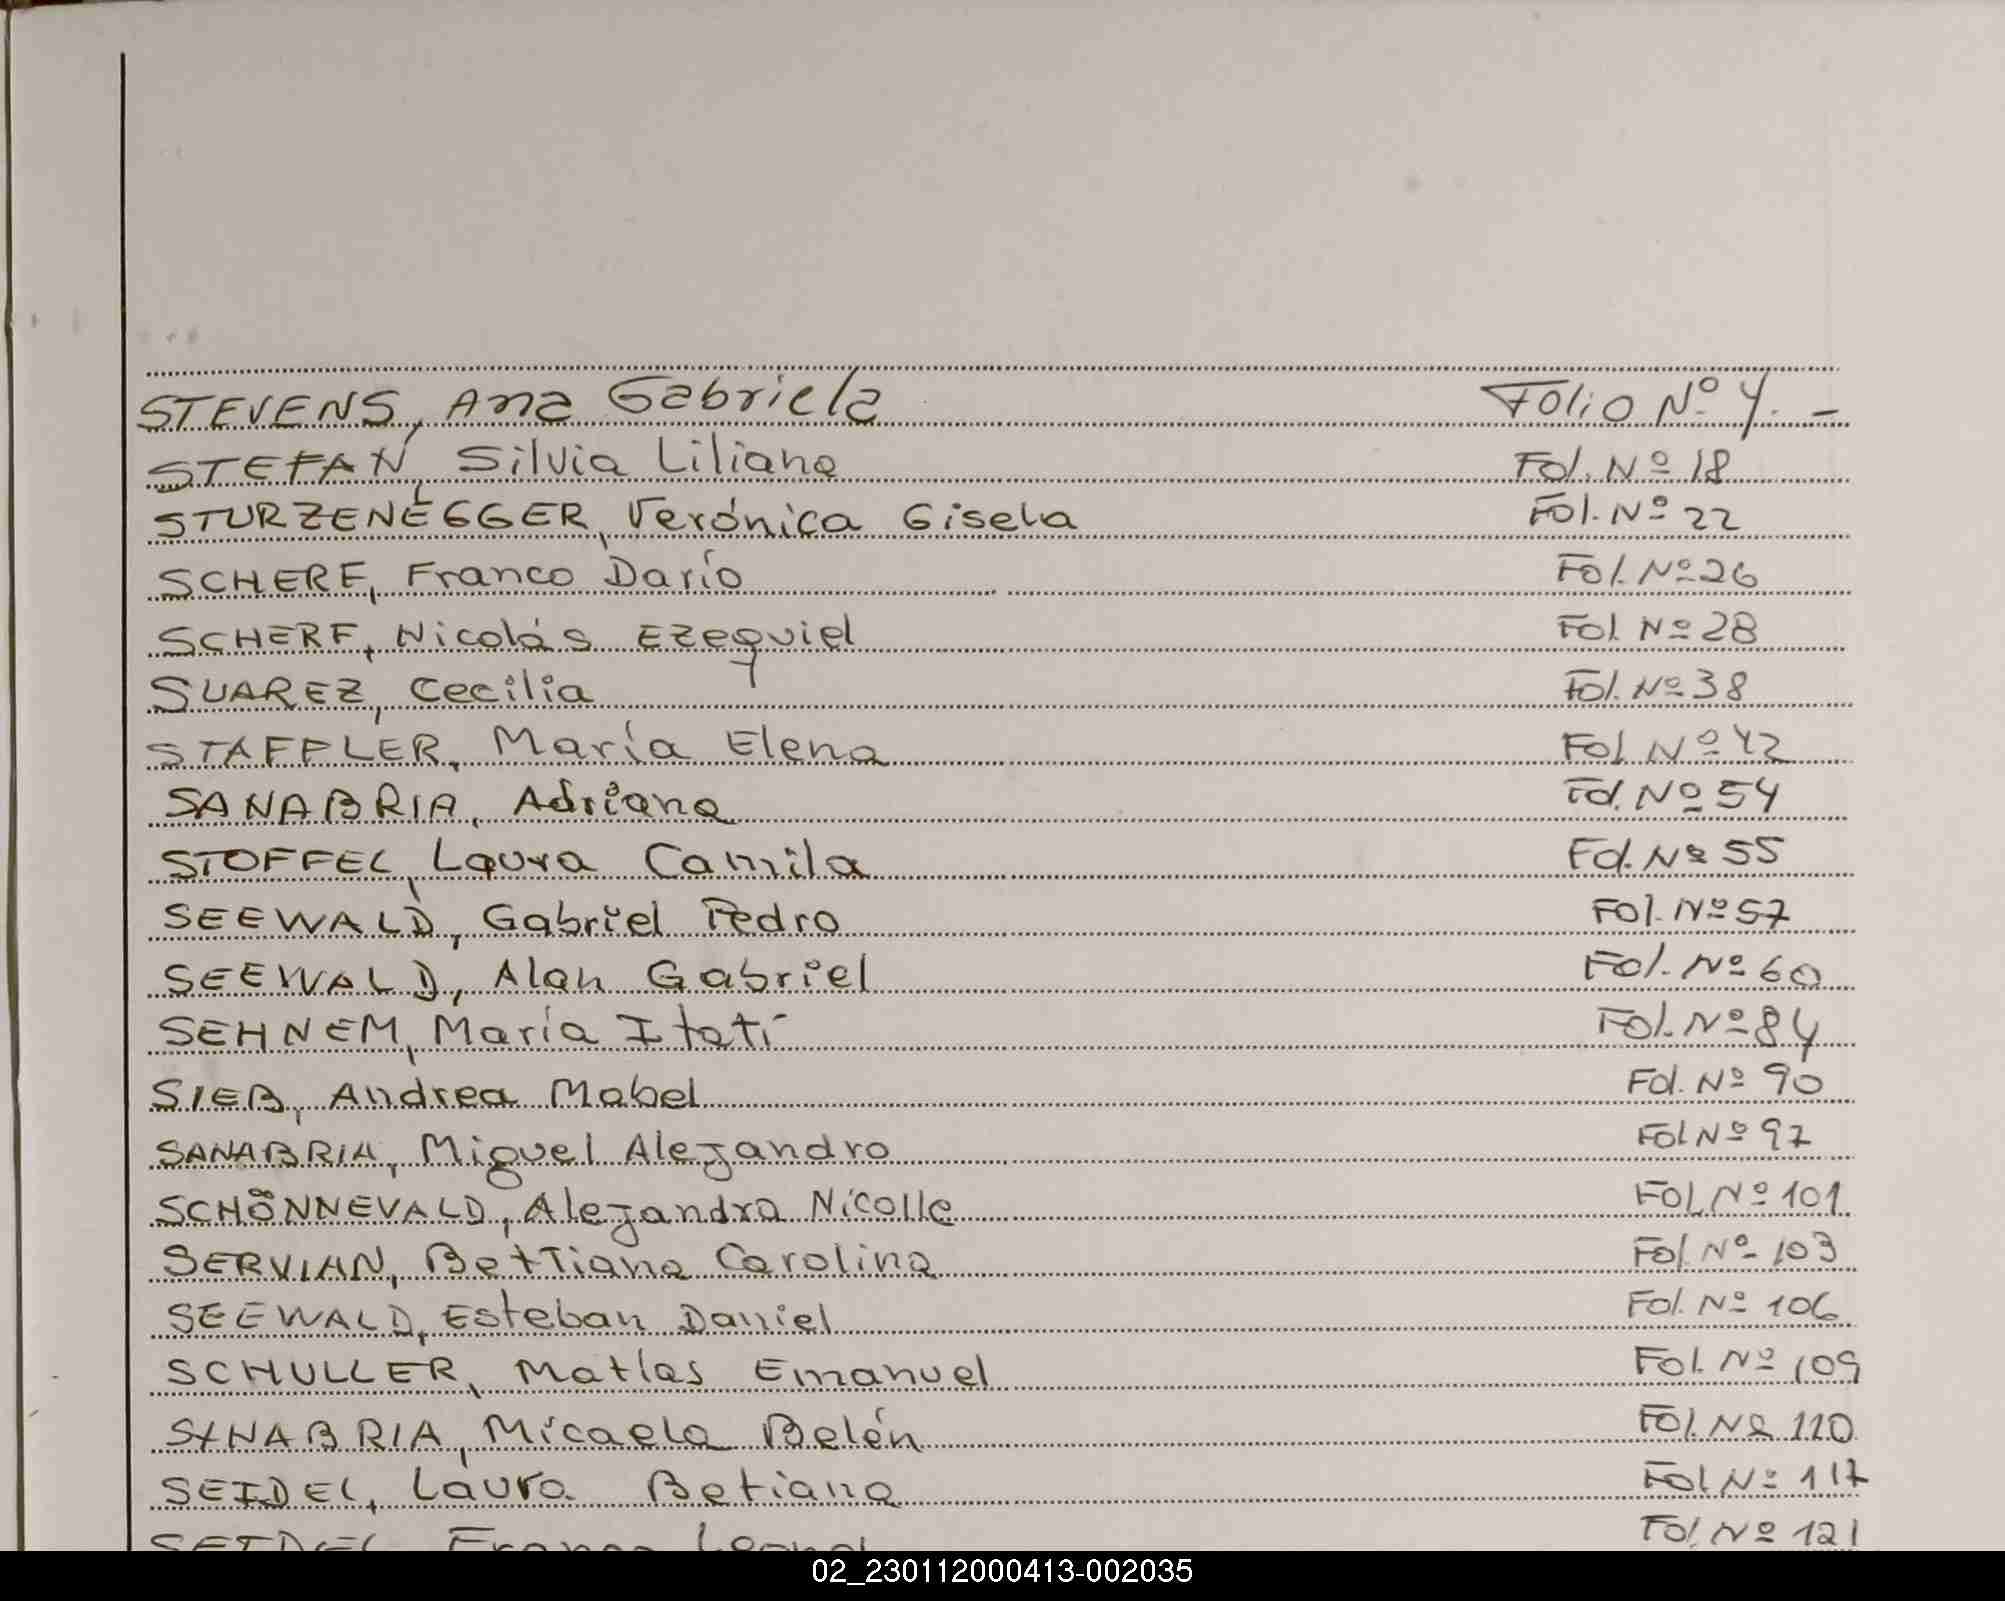 STEVENS, Ana Gabriela Folio Nº 4. -
STEFAN, Silvia Liliana Fol. Nº 18
STURZENEGGER, Verónica Gisela Fol. Nº 22
SCHERF, Franco Darío Fol. Nº 26
SCHERF, Nicolás Ezequiel Fol. Nº 28
SUAREZ, Cecilia Fol. Nº 38
STAFFLER, María Elena Fol. Nº 42
SANABRIA, Adriana Fol. Nº 54
STOFFEL, Laura Camila Fol. Nº 55
SEEWALD, Gabriel Pedro Fol. Nº 57
SEEWALD, Alan Gabriel Fol. Nº 60
SEHNEM, María Itatí Fol. Nº 84
SIEB, Andrea Mabel Fol. Nº 90
SANABRIA, Miguel Alejandro Fol Nº 97
SCHÖNNEVALD, Alejandra Nicolle Fol. Nº 101
SERVIAN, Bettiana Carolina Fol. Nº 103
SEEWALD, Esteban Daniel Fol. Nº 106
SCHULLER, Matías Emanuel Fol. Nº 109
SANABRIA, Micaela Belén Fol. Nº 110
SEIDEL, Laura Betiana Fol Nº 117
SEIDEL, Franco Leonel Fol. Nº 121
02_230112000413-002035